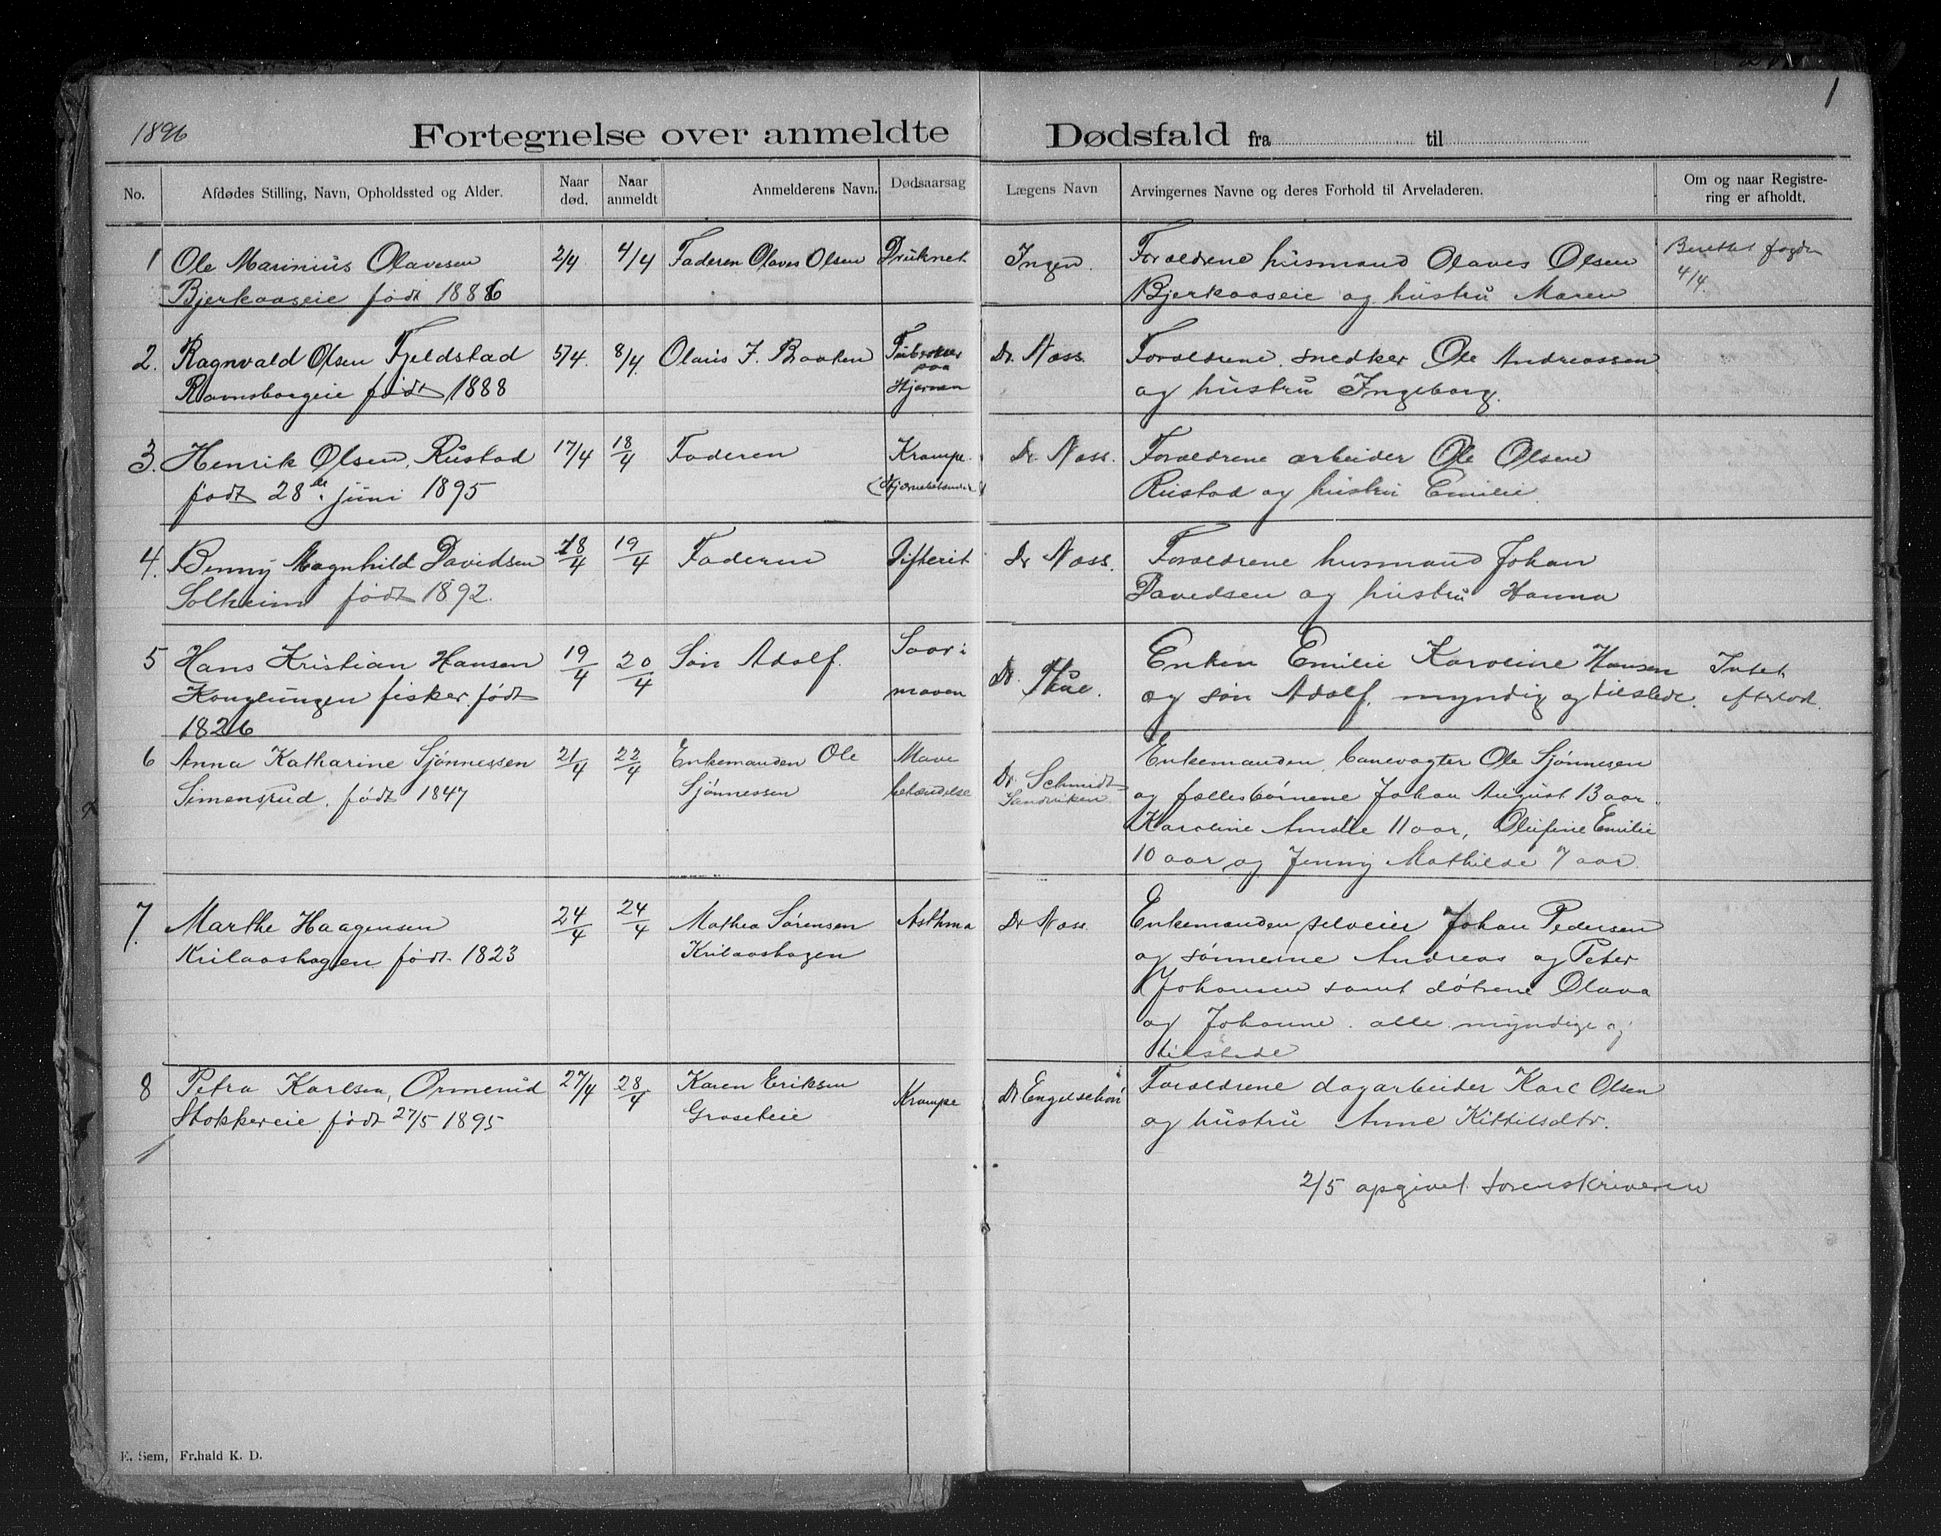 1
1896
Fortegnelse over anmeldte Dødsfald fra til
No. Afdødes Stilling, Navn, Opholdssted og Alder. Naar død. Naar anmeldt Anmelderens Navn. Dødsaarsag Lægens Navn Arvingernes Navne og deres Forhold til Arveladeren. Om og naar Registrering er afholdt.
1 Ole Marinius Olavesen 2/4 4/4 Faderen Olaves Olsen Druknet Ingen. Forældrene husmand Olaves Olsen Berettet fogden
Bjerkaaseie født 1886 Bjerkaaseie og hustru Maren 4/4.
2. Ragnvald Olsen Fjeldstad 5/4 8/4 Olaus J. Braaten paa Hjernen Dr. Nass Forældrene snedker Ole Andreassen
Ravnsborgeie født 1888 og hustru Ingeborg.
3. Henrik Olsen, Rustad 17/4 18/4 Faderen Krampe Dr. Nass. Forældrene arbeider Ole Olsen
født 28de juni 1895 Rustad og hustru Emilie.
4. Benny Magnhild Davidsen 18/4 19/4 Faderen Difterit Dr Nass. Forældrene husmand Johan
Solheim født 1892. Davidsen og hustru Hanna
5 Hans Kristian Hansen 19/4 20/4 Søn Adolf. Saar i Dr. Thue. Enken Emilie Karoline Hansen Intet
Konglungen fisker født maven og søn Adolf, myndig og tilstede. efterlod.
1826
6 Anna Katharine Sjønnessen 21/4 22/4 Enkemanden Ole Mave Dr. Schmidt Enkemanden, banevogter Ole Sjønnesen
Simensrud. født 1847 Sjønnessen betændelse Sandviken og fællesbørnene Johan August 13 aar.
Karoline Amalie 11 aar, Olufine Emilie
10 aar og Jenny Mathilde 7 aar
7. Marthe Haagensen 24/4 24/4 Mathea Sørensen Asthma Dr Nass Enkemanden selveier Johan Pedersen
Krilaashagen født 1823 Krilaashagen og sønnerne Andreas og Peter
Johansen samt døtrene Olava
og Johanne. alle myndige og
tilstede
8 Petra Karlsen, Ormerud 27/4 28/4 Karen Eriksen Krampe Dr Engelschøn Forældrene dagarbeider Karl Olsen
Stokkereie født 27/5 1895 Graseteie og hustru Anne Kittilsdtr.
2/5 opgivet sorenskriveren
E. Sem, Fr.hald K. D.